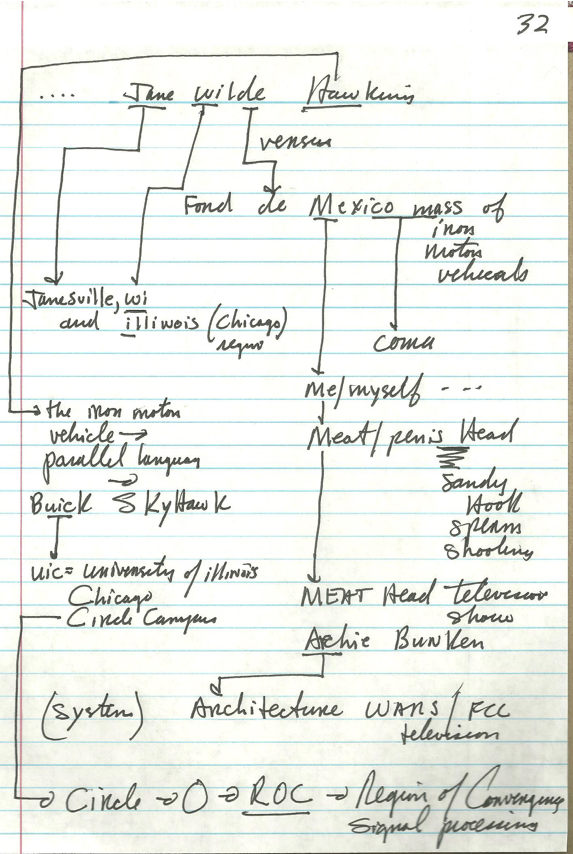 32
.... Jane wilde Hawkins
versus
Fond de Mexico mass of
iron
motor
vehicals
Janesville, wi
and illinois (Chicago)
coma
Me/myself ...
the iron motor
vehicle →
parallel language
Meat/penis Head
Buick SkyHawk
Sandy
Hook
sperm
shooting
uic = university of illinois
Chicago
Circle Campus
MEAT Head television
show
Archie Bunker
(System) Architecture WARS / FCC
television
Circle → O → ROC → Region of Convergence
Signal processing